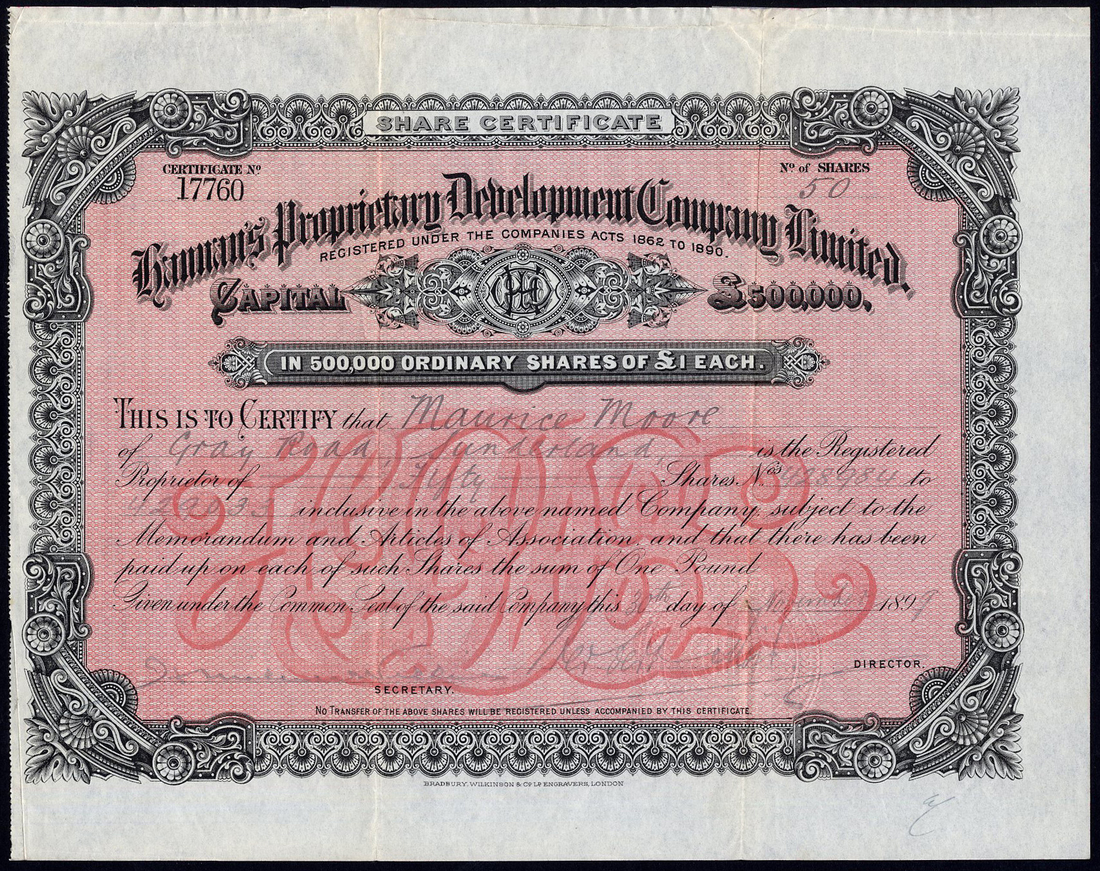 SHARE CERTIFICATE
CERTIFICATE Nº
17760
Nº of SHARES
50
Hannan's Proprietary Development Company Limited.
REGISTERED UNDER THE COMPANIES ACTS 1862 TO 1890.
CAPITAL £500,000.
IN 500,000 ORDINARY SHARES OF £1 EACH.
THIS IS TO CERTIFY that Maurice Moore
of Gray Road, Sunderland, is the Registered
Proprietor of Fifty Shares Nos 428984 to
429033 inclusive in the above named Company, subject to the
Memorandum and Articles of Association, and that there has been
paid up on each of such Shares the sum of One Pound
Given under the Common Seal of the said Company this 30th day of November 1899
DIRECTOR.
SECRETARY.
NO TRANSFER OF THE ABOVE SHARES WILL BE REGISTERED UNLESS ACCOMPANIED BY THIS CERTIFICATE.
BRADBURY, WILKINSON & Cº Lº ENGRAVERS, LONDON